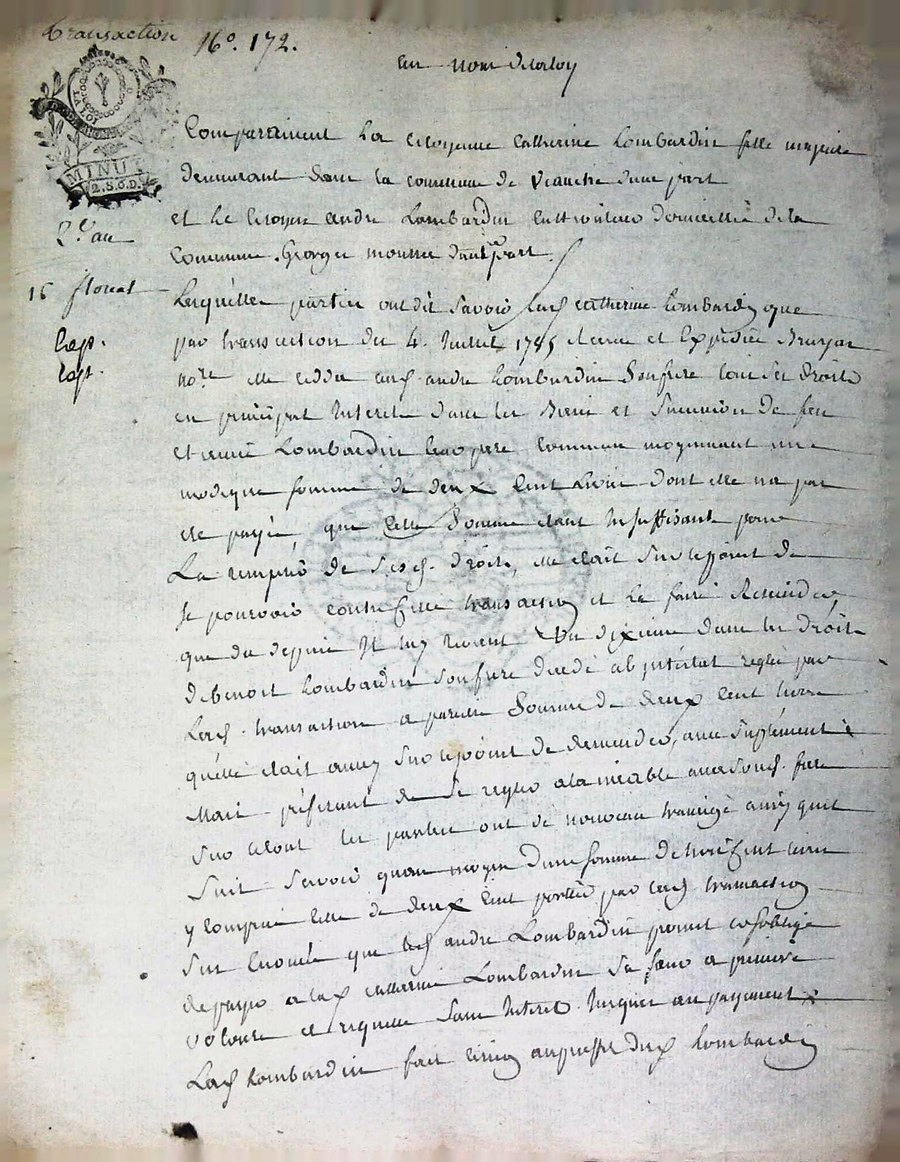 Transaction
N°. 172.
au nom de la loy
LA LOI
MINUT
2. S. 6. D.
Comparaissent La Citoyenne Catherine Lombardin fille majeure
demeurant dans la commune de d'une part
et Le Citoyen andre Lombardin domicillié de la
Commune Georges d'autre part.
2.e an
16 floreal
Exp.
Exp.
Lesquelles parties ont dit savoir lad. Catherine Lombardin que
par transaction du 4. Juillet 1785 et Expédiée
no.re elle cedda aud. andre Lombardin Son frere tous ses droits
en principal Interets dans les Biens et Succession de feu
Lombardin pere commun moyennant une
modique somme de deux Cent Livres dont elle na pas
ete payée, que cette Somme etant Insuffisante pour
La remplir de Sesd. droits, elle etait Sur le point de
se pourvoir contre cette transaction et La faire
que du depuis Il luy revient Un dixieme dans les droits
de Benoit Lombardin Son frere decedé ab intestat reglé par
Lad. transaction a pareille Somme de deux Cent Livres
quelle etait aussy Sur le point de demander, un Suplement
Mais préferant de Se regler a lamiable avec Sond. frere
Sur le tout les parties ont de nouveau transigé ainsy quil
Suit Savoir quau moyen d'une somme de Cent Livres
y Compris Celle de deux Cent portée par lad. transaction
Sus Enoncée que led. andre Lombardin promet et soblige
de payer a lad. Catherine Lombardin Sa Soeur a premiere
volonté et requette Sans Interet Jusques au payement
Lad. Lombardin fait dud. Lombardin